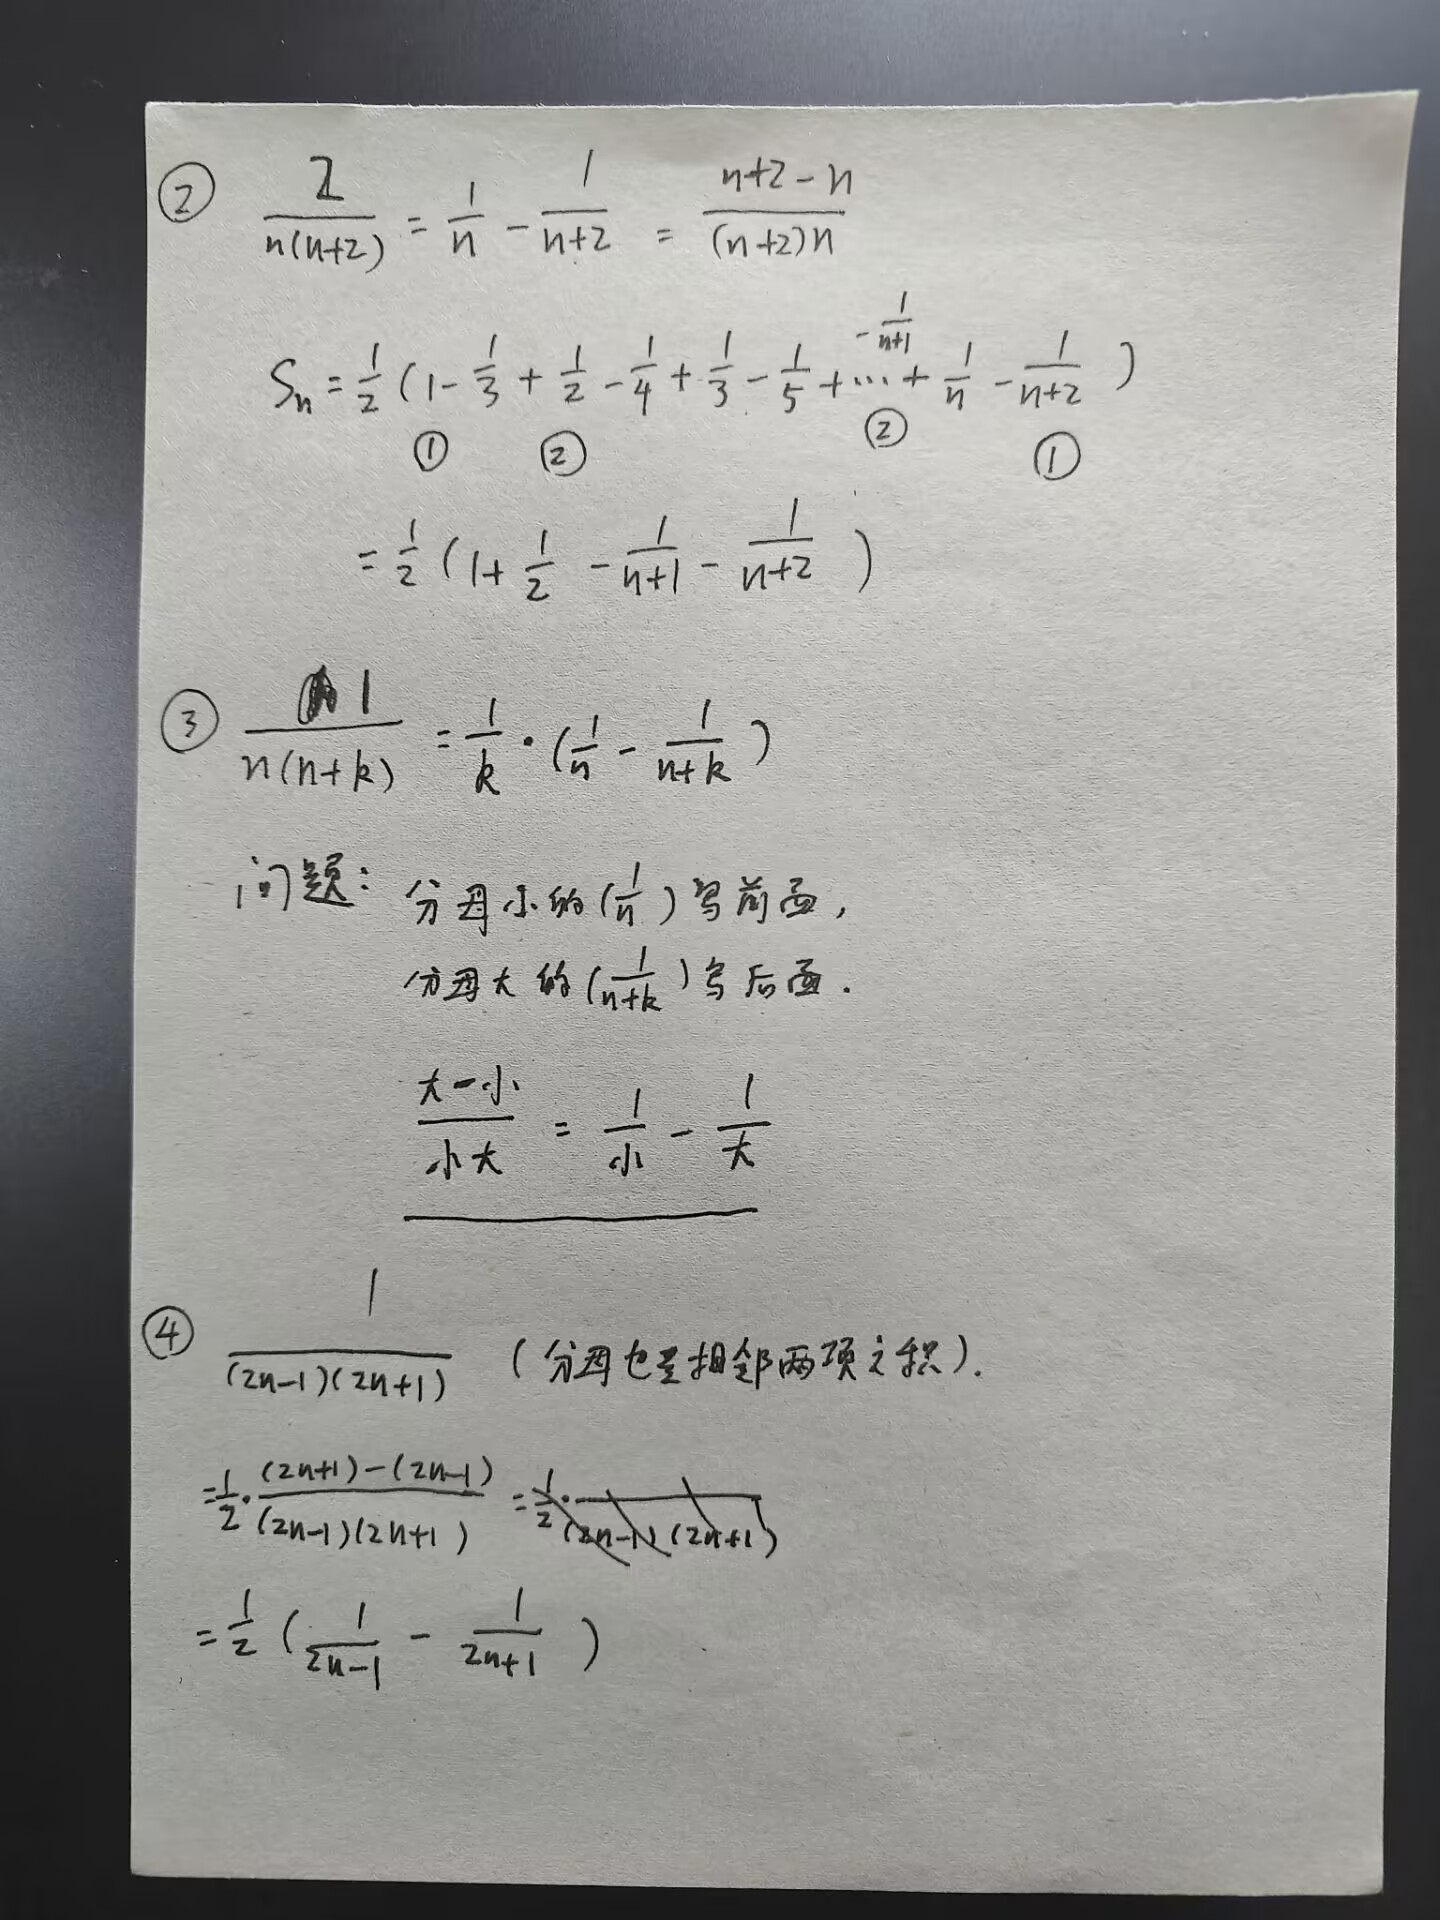 ② 2/(n(n+2)) = 1/n - 1/(n+2) = (n+2-n)/((n+2)n)
Sn = 1/2 (1 - 1/3 + 1/2 - 1/4 + 1/3 - 1/5 + ... - 1/(n+1) + 1/n - 1/(n+2))
① ② ② ①
= 1/2 (1 + 1/2 - 1/(n+1) - 1/(n+2))
③ 1/(n(n+k)) = 1/k · (1/n - 1/(n+k))
问题: 分母小的(1/n)写前面,
分母大的(1/(n+k))写后面.
(大-小)/(小大) = 1/小 - 1/大
④ 1/((2n-1)(2n+1)) (分母也是相邻两项之积).
= 1/2 · ((2n+1)-(2n-1))/((2n-1)(2n+1)) = 1/2 · /((2n-1)(2n+1))
= 1/2 (1/(2n-1) - 1/(2n+1))